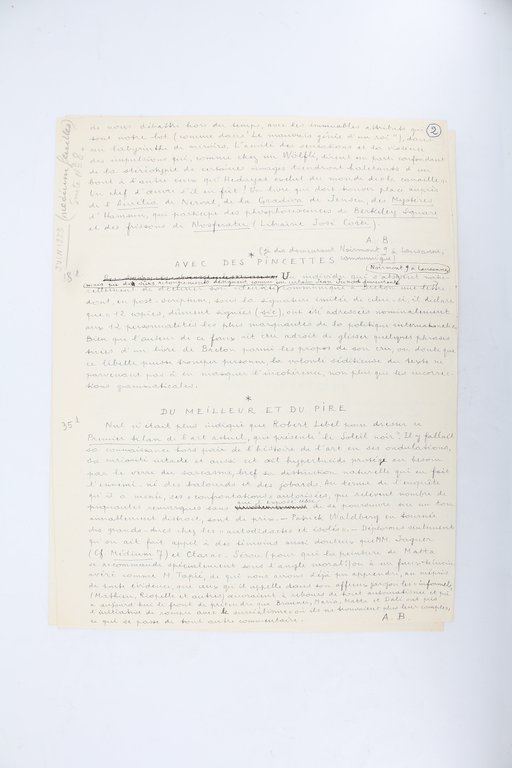 de nous débattre hors du temps, avec les immuables attributs qui
sont notre lot (comme dans "Le mauvais génie d'un roi"), dans
un labyrinthe de miroirs. L'acuité des sensations et la violence
des impulsions qui, comme chez un Wölfli, tirent un parti confondant
de la stéréotypie de certaines images tiendront haletants d'un
bout à l'autre ceux que Hedayat exclut du monde de la canaille.
Un chef d'œuvre s'il en fut! Un livre qui doit trouver place auprès
de l'Aurélia de Nerval, de la Gradiva de Jensen, des Mystères
d'Hamsun, qui participe des phosphorescences de Berkeley Square
et des frissons de Nosferatu (Librairie José Corti).
A. B
②
JUIN 1953 (médium feuille)
Suite N° 8
*
AVEC DES PINCETTES
(Normont 9 à Lausanne)
Un individu
dont, en post-scriptum, sous la signature imitée de celui-ci, il déclare
que "12 copies, dûment signées (sic), ont été adressées nominalement
aux 12 personnalités les plus marquantes de la politique internationale."
Bien que l'auteur de ce faux ait cru adroit de glisser quelques phrases
tirées d'un livre de Breton parmi les propos de son cru, on doute que
ce libelle puisse tromper personne: la volonté séditieuse du texte ne
parvenant pas à en masquer l'incohérence, non plus que les incorrec-
tions grammaticales.
*
DU MEILLEUR ET DU PIRE
35
Nul n'était plus indiqué que Robert Lebel pour dresser ce
Premier bilan de l'art actuel, que présente "Le Soleil noir". Il y fallait
sa connaissance hors pair de l'histoire de l'art en ses ondulations,
sa curiosité intacte et aussi cet œil hyperlucide protégé au besoin
par le verre du sarcasme, bref sa distinction naturelle qui en fait
l'ennemi-né des balourds et des jobards. Au terme de l'enquête
qu'il a menée, ses "confrontations" autorisées, que relèvent nombre de
piquantes remarques sans
de se poursuivre sur un ton
anormalement distrait, sont de prix. – Patrick Waldberg en tournée
des grands-ducs chez les "autodidactes et isolés". – Déplorons seulement
qu'on ait fait appel à des témoins aussi douteux que MM. Jaguer
(Cf. Médium 7) et Clarac-Sérou (pour qui la peinture de Matta
se recommande spécialement sous l'angle moral!) ou à un faux-témoin
avéré comme M. Tapié, de qui nous avions déjà pu apprendre, au mépris
de toute évidence, que ceux qu'il appelle dans son affreux jargon les "informels"
(Mathieu, Riopelle et autres) œuvraient à rebours de tout automatisme et qui
a aujourd'hui le front de prétendre que Brauner, Maria, Matta et Dali ont pris
ce qui se passe de tout autre commentaire.
A. B.